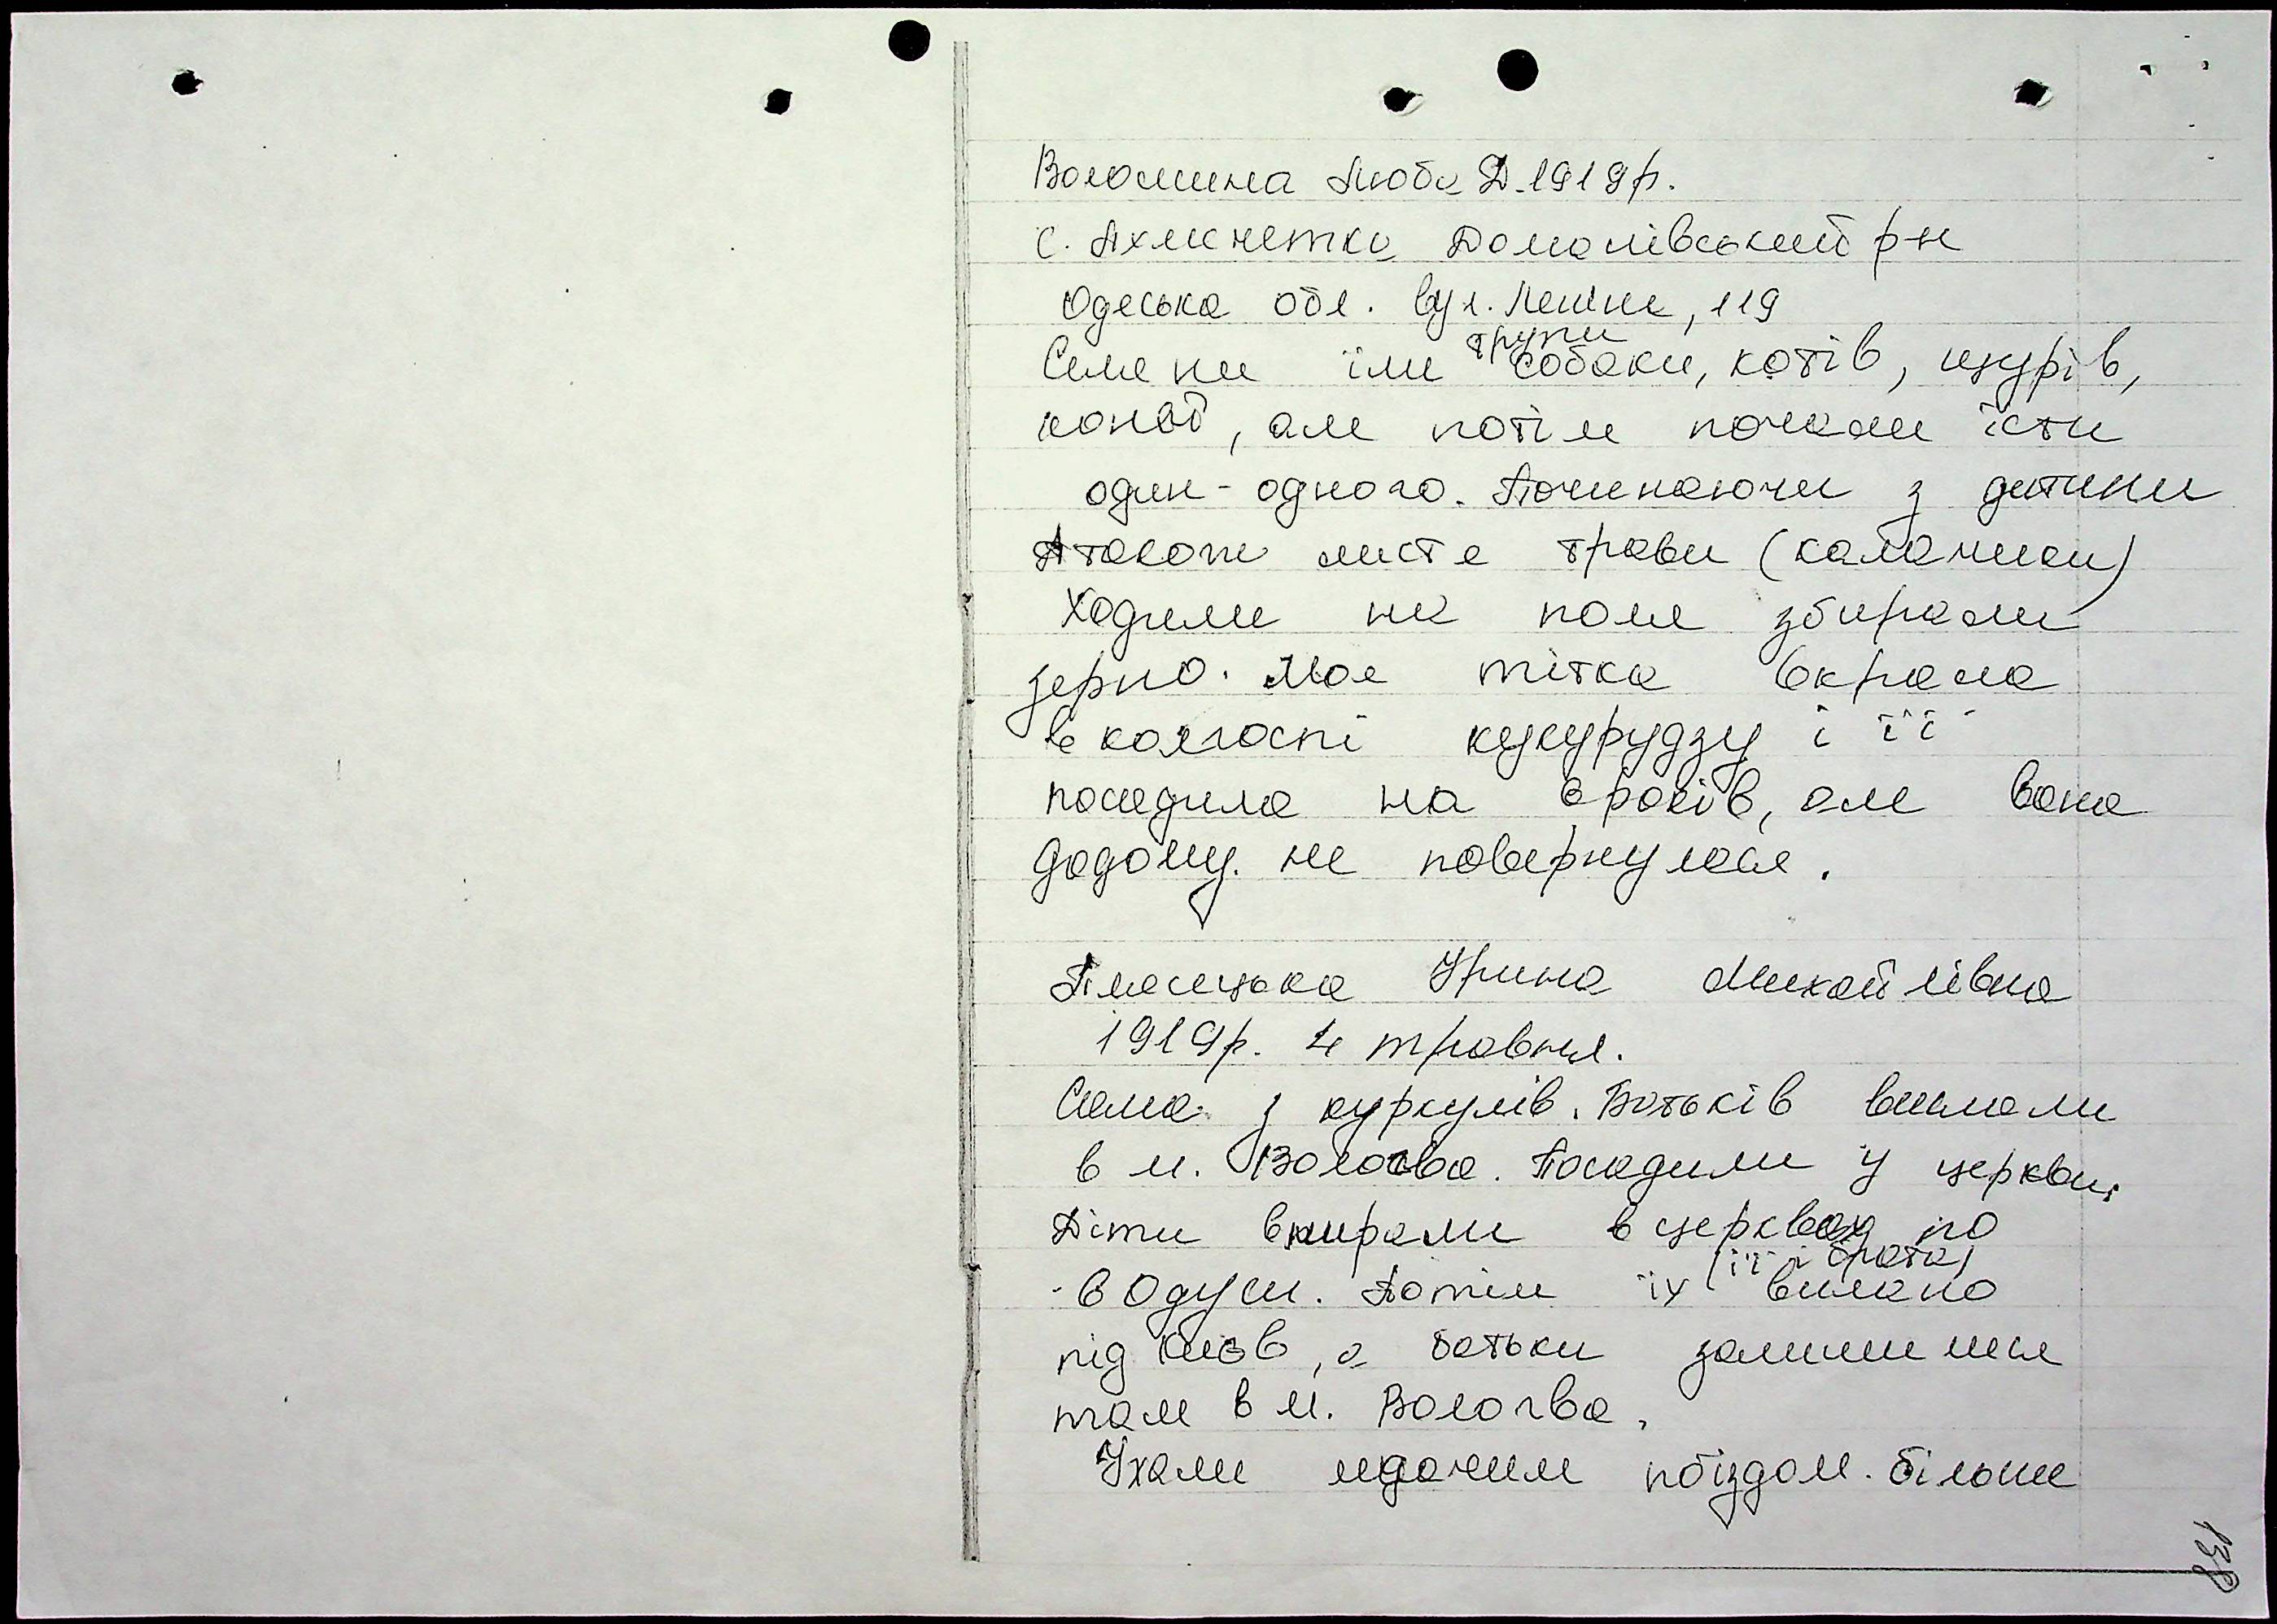 Воломина Люба Д. 1919р.
с. Ахмечетка Доманівський р-н
Одеська обл. вул. Леніна, 119
Селяни їли трупи собаки, котів, щурів,
коней, але потім почали їсти
один-одного. Починаючи з дитини
А також листя трави (калачики)
Ходили на поля збирали
зерно. Моя тітка вкрала
в колгоспі кукурудзу і її
посадила на 6 років, але вона
додому не повернулася.
Ірина Михайлівна
1919р. 4 травня.
Сама з куркулів. Батьків вислали
в м. Вологва. Посадили у церкви.
Діти вмирали в церквах по
в Одуси. Потім їх (її і брата) вислано
під Київ, а батьки залишилися
там в м. Вологва.
Ухали поїздом. більше
138